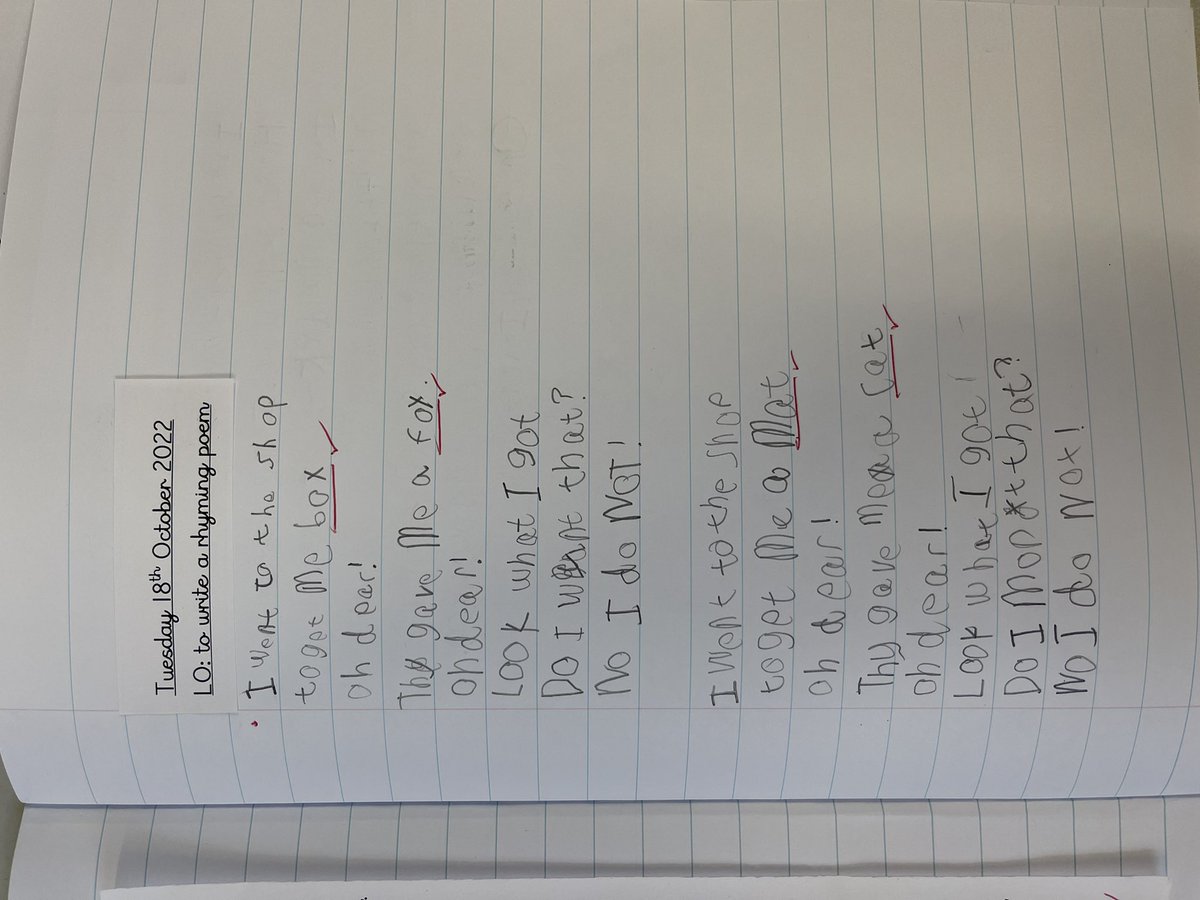 Tuesday 18th October 2022
LO: to write a rhyming poem
I went to the shop
to get Me box
oh dear!
Thy gave Me a fox.
oh dear!
Look what I got
Do I want that?
No I do NOT!
I went to the shop
to get Me a Mat
oh dear!
Thy gave Me a cat
oh dear!
Look what I got
Do I that?
No I do Not!